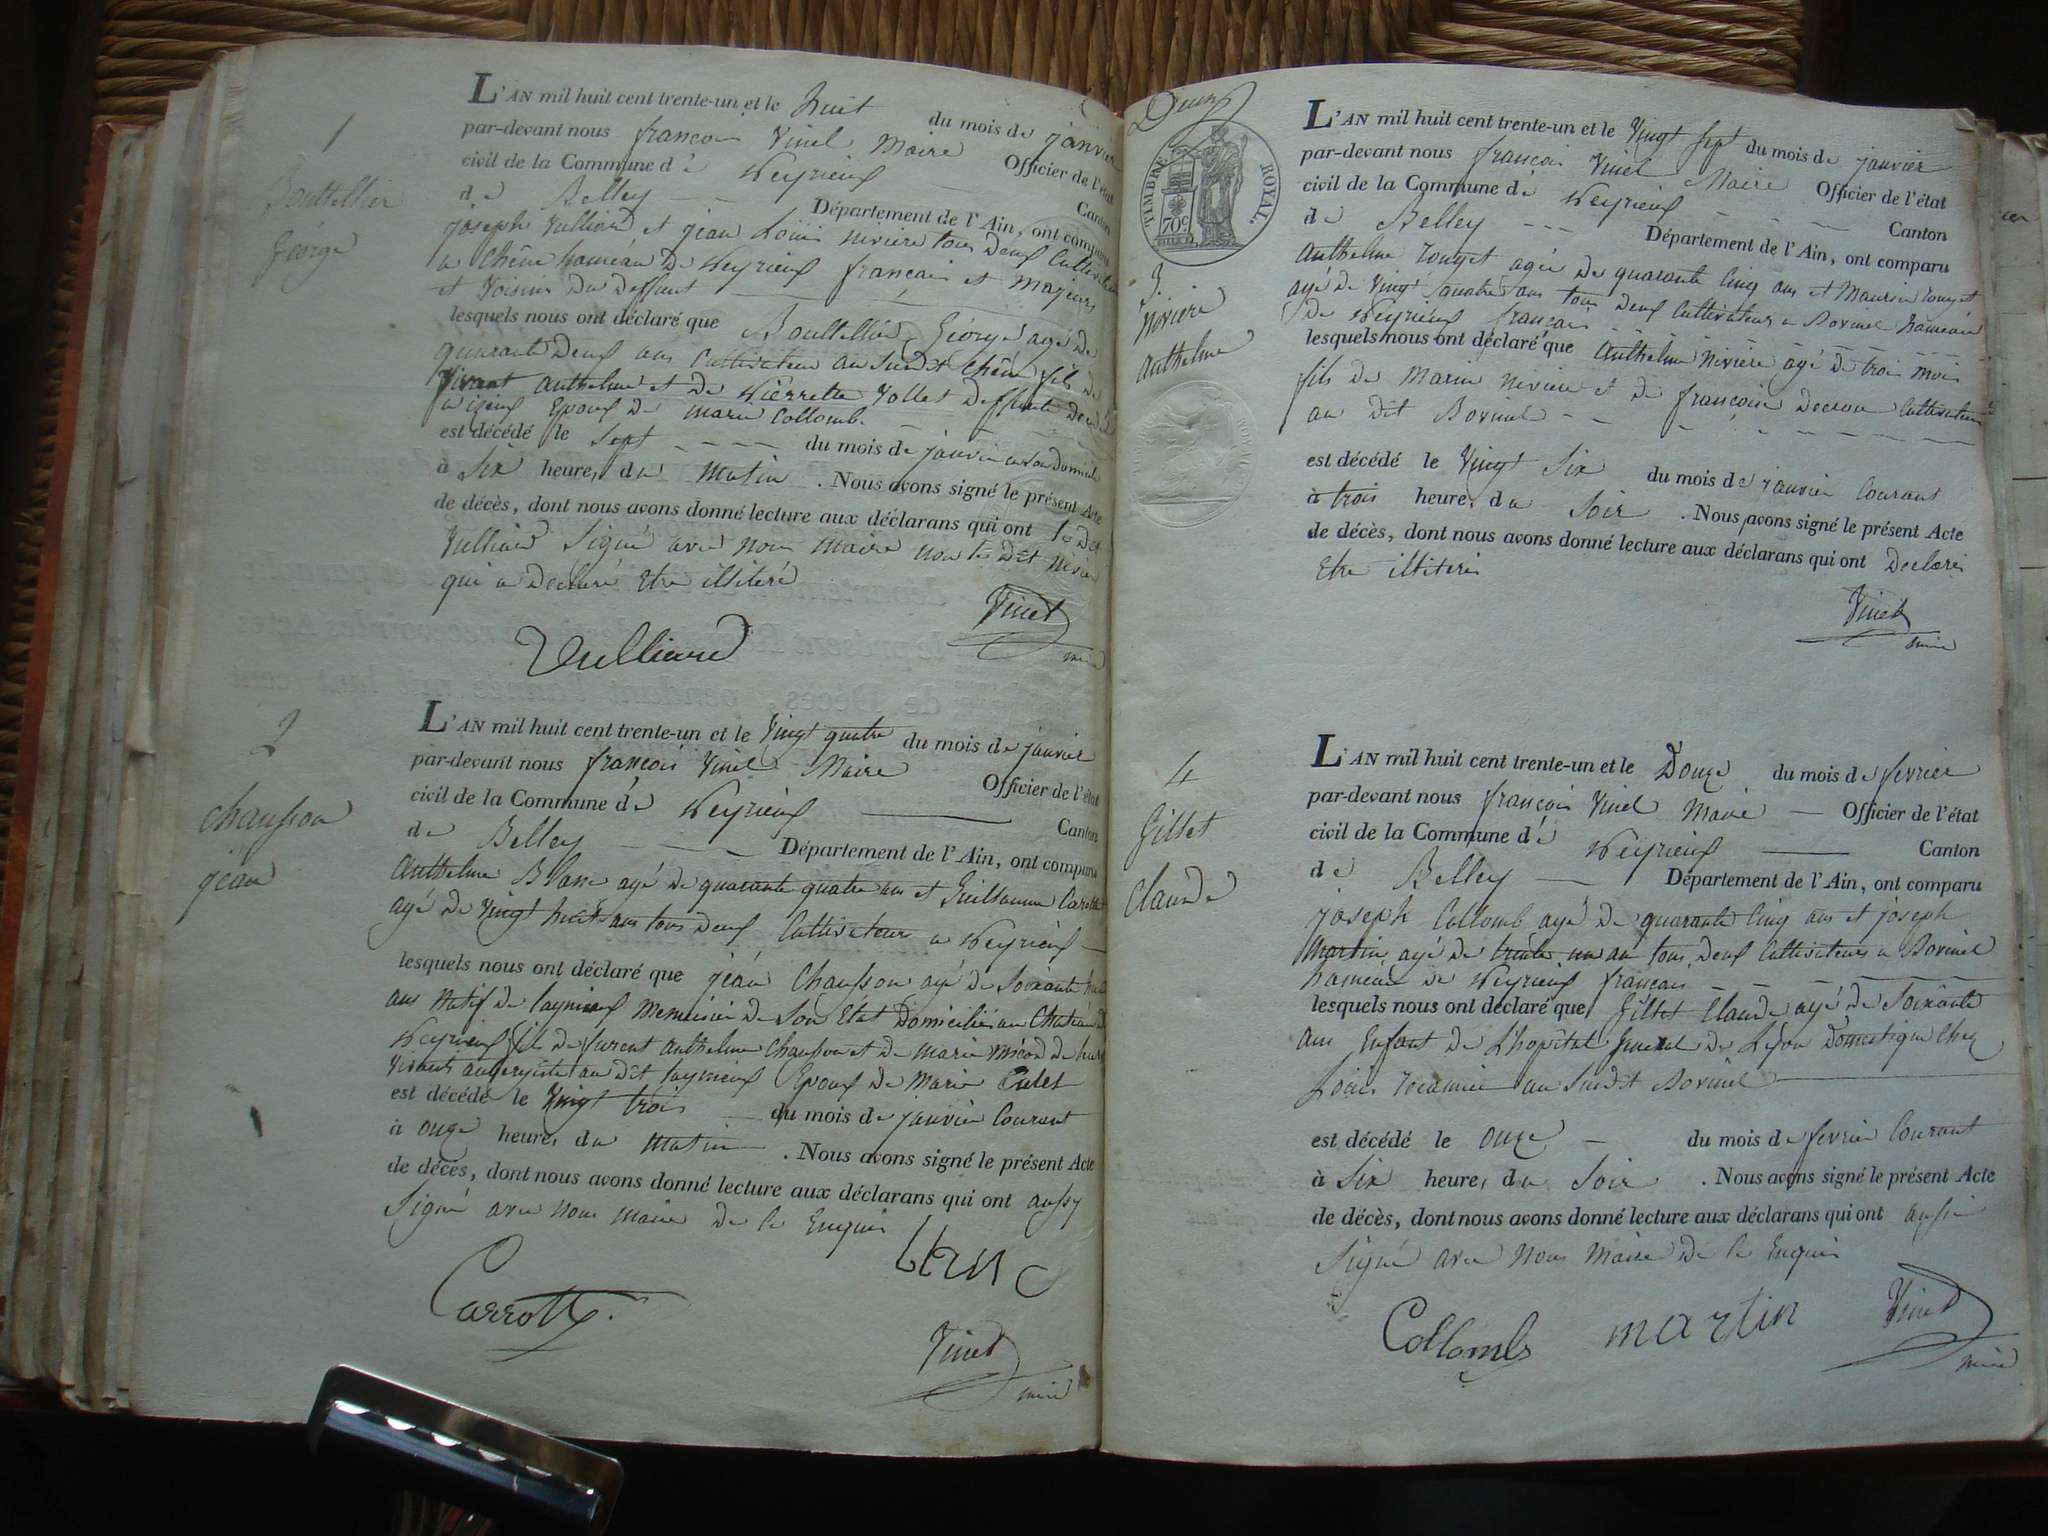 1
Bouttellier
George
L'AN mil huit cent trente-un et le huit du mois de janvier
par-devant nous françois Vinet Maire Officier de l'état
civil de la Commune dé Peyrieux Canton
de Belley Département de l'Ain, ont comparu
joseph Vulliard et jean Louis niviere tous deux Cultivateurs
a Chêne hameau de Peyrieux français et majeurs
et Voisins du deffunt
lesquels nous ont déclaré que Bouttellier George agé de
quarante deux ans Cultivateur au susdit Chêne fils de
Vivant anthelme et de Pierrette Vollet deffunte
a izieux Epoux de marie Collomb.
est décédé le sept du mois de janvier en son Domicile
à six heures du matin . Nous avons signé le présent Acte
de décès, dont nous avons donné lecture aux déclarans qui ont le dit
Vulliard Signé avec nous maire non le dit nivier
qui a déclaré Etre illiteré
Vinet
maire
Vulliard
2
Chausson
jean
L'AN mil huit cent trente-un et le Vingt quatre du mois de janvier
par-devant nous françois Vinet Maire Officier de l'état
civil de la Commune dé Peyrieux Canton
de Belley Département de l'Ain, ont comparu
anthelme Blanc agé de quarante quatre ans et Guillaume
agé de Vingt huit ans tous deux Cultivateurs a Peyrieux
lesquels nous ont déclaré que jean Chausson agé de soixante huit
ans Natif de Menuisier de Son Etat Domicilié au Chateau de
Peyrieux fils de furent anthelme Chausson et de marie
Vivants au dit Epoux de Marie Culet
est décédé le Vingt trois du mois de janvier Courant
à onze heures du matin . Nous avons signé le présent Acte
de décès, dont nous avons donné lecture aux déclarans qui ont aussy
Signé avec nous maire de ce Enquis
Blanc
Carrott
Vinet
maire
Deux
TIMBRE ROYAL.
70c
3.
Niviere
anthelme
L'AN mil huit cent trente-un et le Vingt sept du mois de janvier
par-devant nous françois Vinet Maire Officier de l'état
civil de la Commune dé Peyrieux Canton
de Belley Département de l'Ain, ont comparu
anthelme rouget agée de quarante Cinq ans et Maurin rouget
agé de Vingt quatre ans tous deux Cultivateurs a Bovinel hameau
de Peyrieux français
lesquels nous ont déclaré que anthelme niviere agé de trois mois
fils de Marin niviere et de françoise Cultivateurs
au dit Bovinel
est décédé le Vingt Six du mois de janvier Courant
à trois heures du Soir . Nous avons signé le présent Acte
de décès, dont nous avons donné lecture aux déclarans qui ont Declarés
Etre illiterés
Vinet
maire
4
Gillet
Claude
L'AN mil huit cent trente-un et le Douze du mois de fevrier
par-devant nous françois Vinet Maire Officier de l'état
civil de la Commune dé Peyrieux Canton
de Belley Département de l'Ain, ont comparu
joseph Collomb agé de quarante Cinq ans et joseph
Martin agé de trente un an tous deux Cultivateurs a Bovinel
hameau de Peyrieux français
lesquels nous ont déclaré que Gillet Claude agé de Soixante
ans Enfant de L'hopital General de Lyon Domestique Chez
Louis au Susdit Bovinel
est décédé le onze du mois de fevrier Courant
à Six heures du Soir . Nous avons signé le présent Acte
de décès, dont nous avons donné lecture aux déclarans qui ont aussi
Signé avec nous Maire de ce Enquis
Collomb martin Vinet
maire